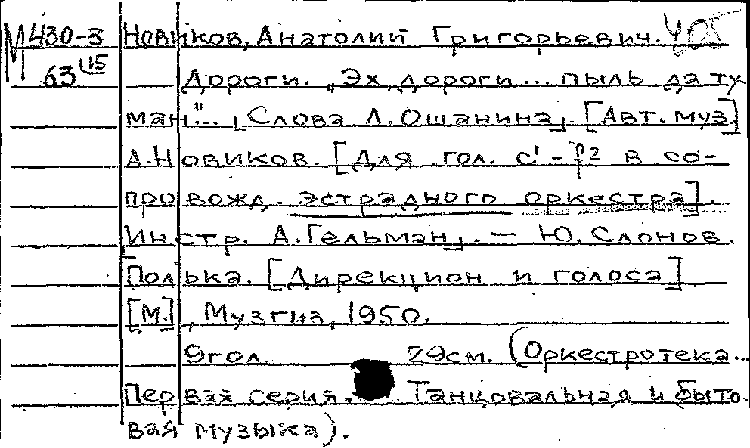 М 430-3 Новиков, Анатолий Григорьевич. 405
63 (15 Дороги. „Эх, дороги... пыль да ту
ман"... [Слова Л. Ошанина]. [Авт. муз]
А. Новиков. [Для гол. c¹ - f² в со-
провожд. эстрадного оркестра].
[Инстр. А. Гельман]. — Ю. Слонов.
Полька. [Дирекцион и голоса]
[М.], Музгиз, 1950.
9 гол. 29 см. (Оркестротека...
Первая серия. Танцовальная и быто-
вая музыка).